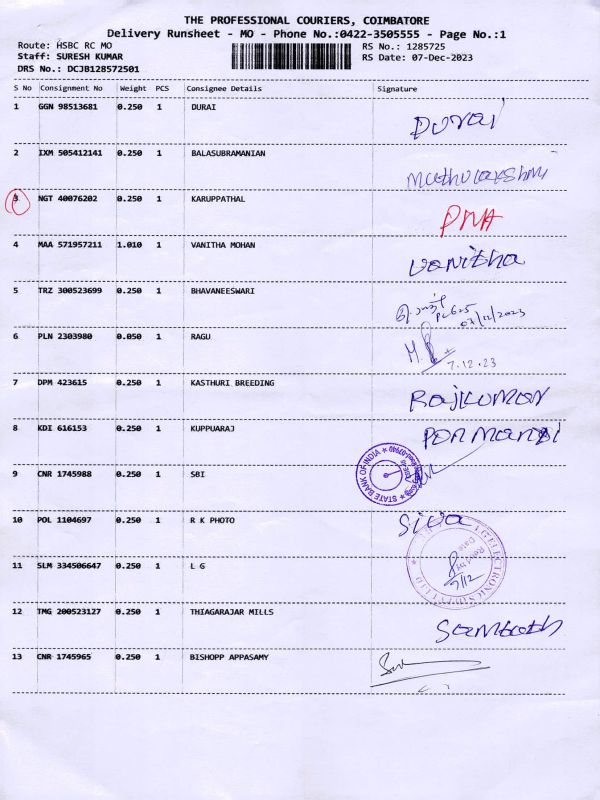 THE PROFESSIONAL COURIERS, COIMBATORE
Delivery Runsheet - MO - Phone No.:0422-3505555 - Page No.:1
Route: HSBC RC MO RS No.: 1285725
Staff: SURESH KUMAR RS Date: 07-Dec-2023
DRS No.: DCJB128572501
S No Consignment No Weight PCS Consignee Details Signature
1 GGN 98513681 0.250 1 DURAI Durai
2 IXM 505412141 0.250 1 BALASUBRAMANIAN Muthulakshmi
3 NGT 40076202 0.250 1 KARUPPATHAL PNA
4 MAA 571957211 1.010 1 VANITHA MOHAN Vanitha
5 TRZ 300523699 0.250 1 BHAVANEESWARI
PC 625
07/12/2023
6 PLN 2303980 0.050 1 RAGU
7.12.23
7 DPM 423615 0.250 1 KASTHURI BREEDING Rajkumar
8 KDI 616153 0.250 1 KUPPUARAJ
9 CNR 1745988 0.250 1 SBI STATE BANK OF INDIA
10 POL 1104697 0.250 1 R K PHOTO Siva
11 SLM 334506647 0.250 1 L G
LG ELECTRONICS
Date
7/12
12 TMG 200523127 0.250 1 THIAGARAJAR MILLS Sambath
13 CNR 1745965 0.250 1 BISHOPP APPASAMY